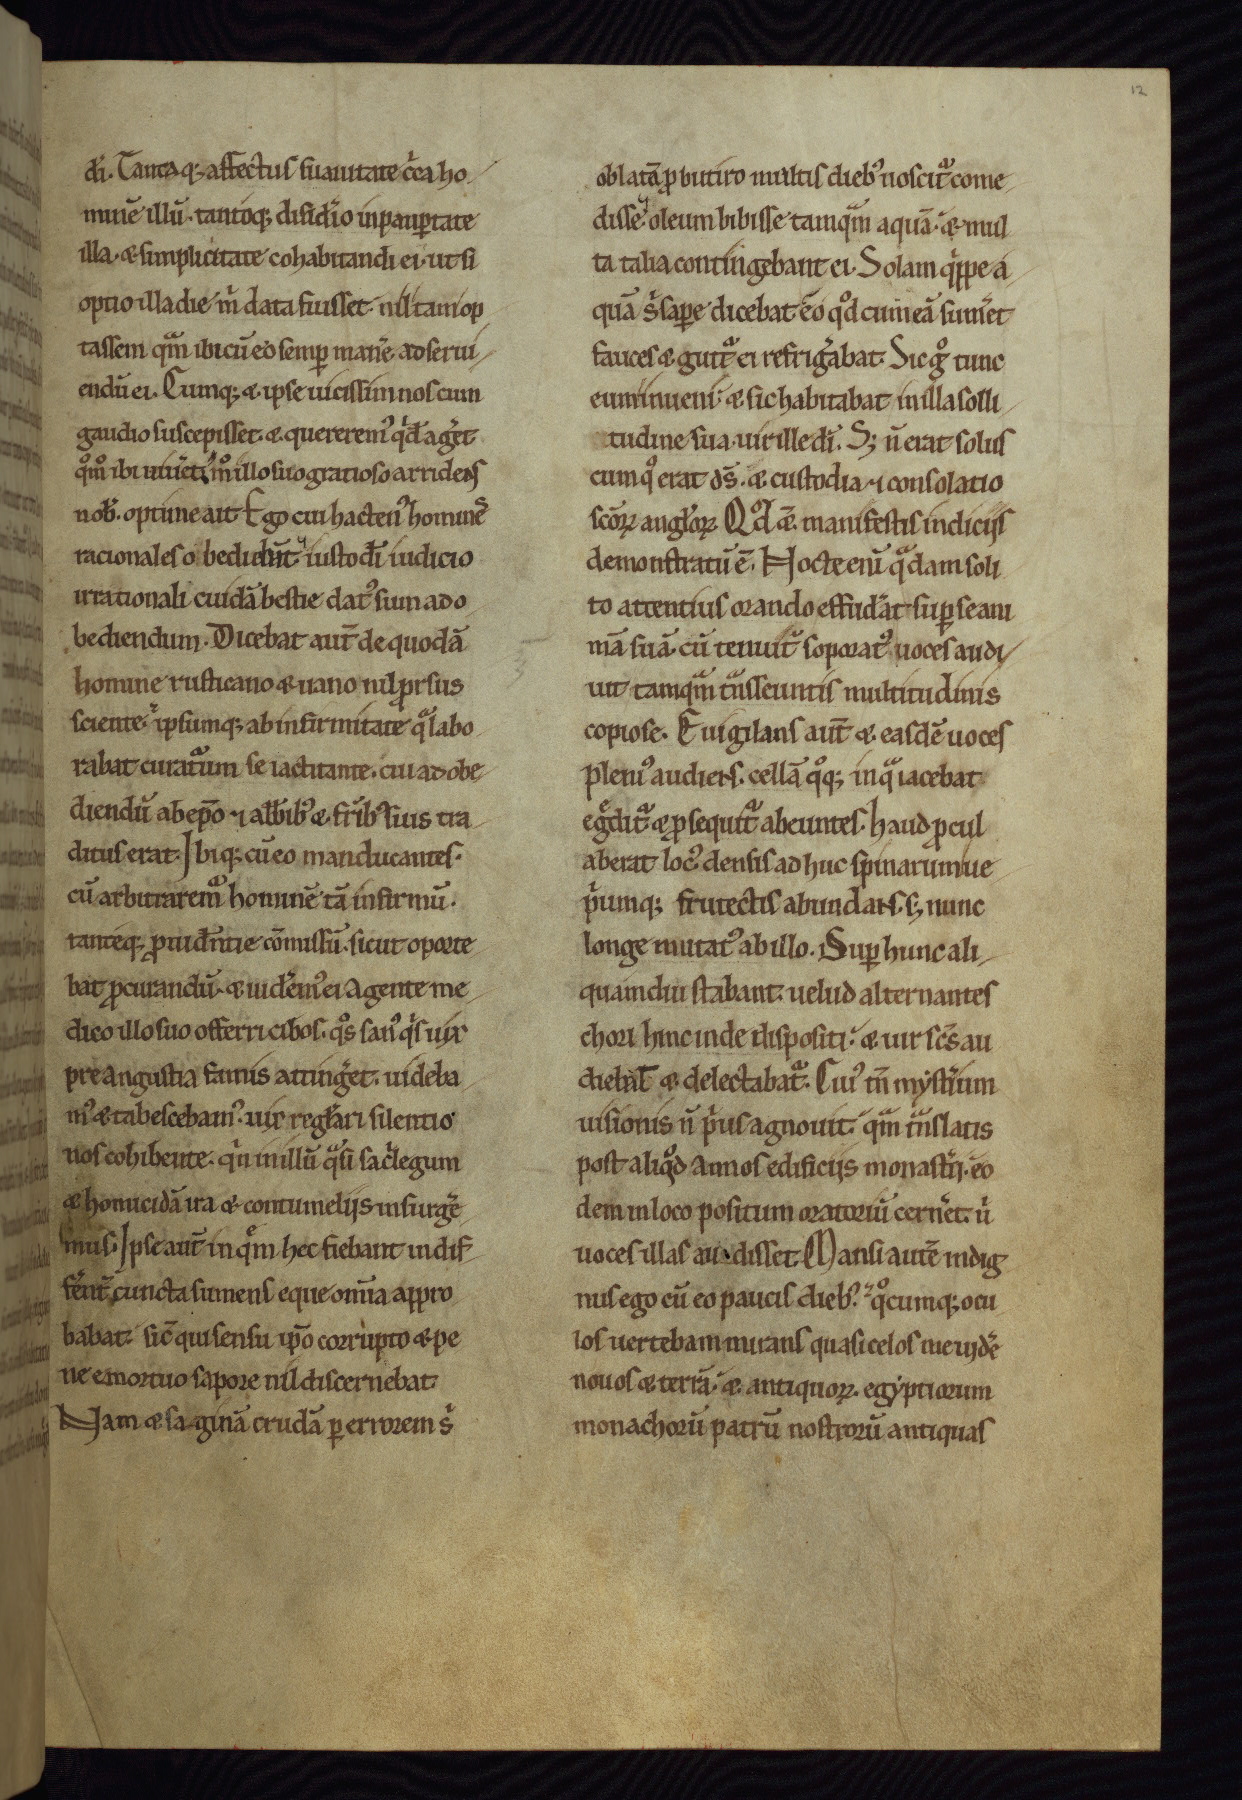 12
dī. Tantaq; affectus suauitate c̓ca ho
minē illū. tantoq; disid̓io in paup̱tate
illa. & simplicitate cohabitandi ei. ut si
optio illa die m̓ data fuisset. nil tam op
tassem qͣm ibi cū eo semp̱ man̄e ad serui
endū ei. Cumq; & ipse uicissim nos cum
gaudio suscepisset. & quererem᷒ qͥd ag̓et
qͦmͦ ibi uiu̓et. mͦ illo suo gratioso arridens
nob̓. optime ait. Ego cui hacten᷒ homin̄es
racionales obediebn̄t iusto dī iudicio
irrationali cuidā bestie dat᷒ sum ad o
bediendum. Dicebat aut̄ de quodā
homine rusticano & uano nil p̱rsus
sciente. ipsumq; ab infirmitate qͣ labo
rabat curatͣum se iactitante. cui ad obe
diendū ab ep̄o ⁊ abb̄ib᷒ & fr̄ib᷒ suis tra
ditus erat. Ibiq; cū eo manducantes.
cū arbitraremͣ hominē tā infirmū.
tanteq; p̱uid̄ntie cōmissū. sicut oporte
bat p̱curandū. & uid̓em᷒ ei agente me
dico illo suo offerri cibos. qͦs san᷒ qͥs uix
pre angustia famis atting̓et. uideba
m᷒ & tabescebam᷒. uix reg̓lari silentio
nos cohibente. qͥn in illū qͣsi sac̓legum
& homicidā ira & contumeliis insurg̓e
mus. Ipse aut̄ in qͥm hec fiebant indif
fer̄ent̄ cuncta sumens eque omīa appro
babat. sic̄ qui sensu ip̄o corrupto & pe
ne emortuo sapore nil discernebat.
Nam & saginā crudā p̱ errorem s̓
oblatā p̱ butiro multis dieb᷒ noscitͣ come
disse. oleum bibisse tamqͣm aquā. & mul
ta talia contingebant ei. Solam qͥppe a
quā s̓ sap̱e dicebat eo qͦd cum eā sum̓et
fauces & guttͣ ei refrig̓abat. Sic gͦ tunc
eum inueni. & sic habitabat in illa solli
tudine sua uir ille dī. S; n̄ erat solus
cum qͦ erat ds̄. & custodia ⁊ consolatio
scōꝝ angl̓oꝝ. Qͦd & manifestis indiciis
demonstratū ē. Nocte eni̅ qͣdam soli
to attentius orando effud̓at sup̱ se ani
mā suā. cū tenuit̄ soporat᷒ uoces audi
uit tamqͣm tͣnsseuntis multitudinis
copiose. Euigilans aut̄ & easdē uoces
pleni᷒ audiens. cellā qͦq; in qͣ iacebat
eg̓ditͣ & p̱sequitͣ abeuntes. haud p̱cul
aberat loc᷒ densis adhuc spinarum ue
p̓umq; frutectis abundans. s; nunc
longe mutat᷒ ab illo. Sup̱ hunc ali
quamdiu stabant. uelud alternantes
chori hinc inde dispositi. & uir sc̄s au
diebat & delectabatͣ. Cui᷒ tn̄ myst̓ium
uisionis n̄ p̓us agnouit. qͣm tͣnslatis
post aliqͦd annos edificiis monast̓ii. eo
dem in loco positum oratoriū cern̓et. u̓
uoces illas audisset. Mansi autē indig
nus ego cū eo paucis dieb᷒. ⁊ qͦcumq; ocu
los uertebam mirans quasi celos me uid̓e
nouos & terrā. & antiquoꝝ egyptiorum
monachorū patrū nostrorū antiquas